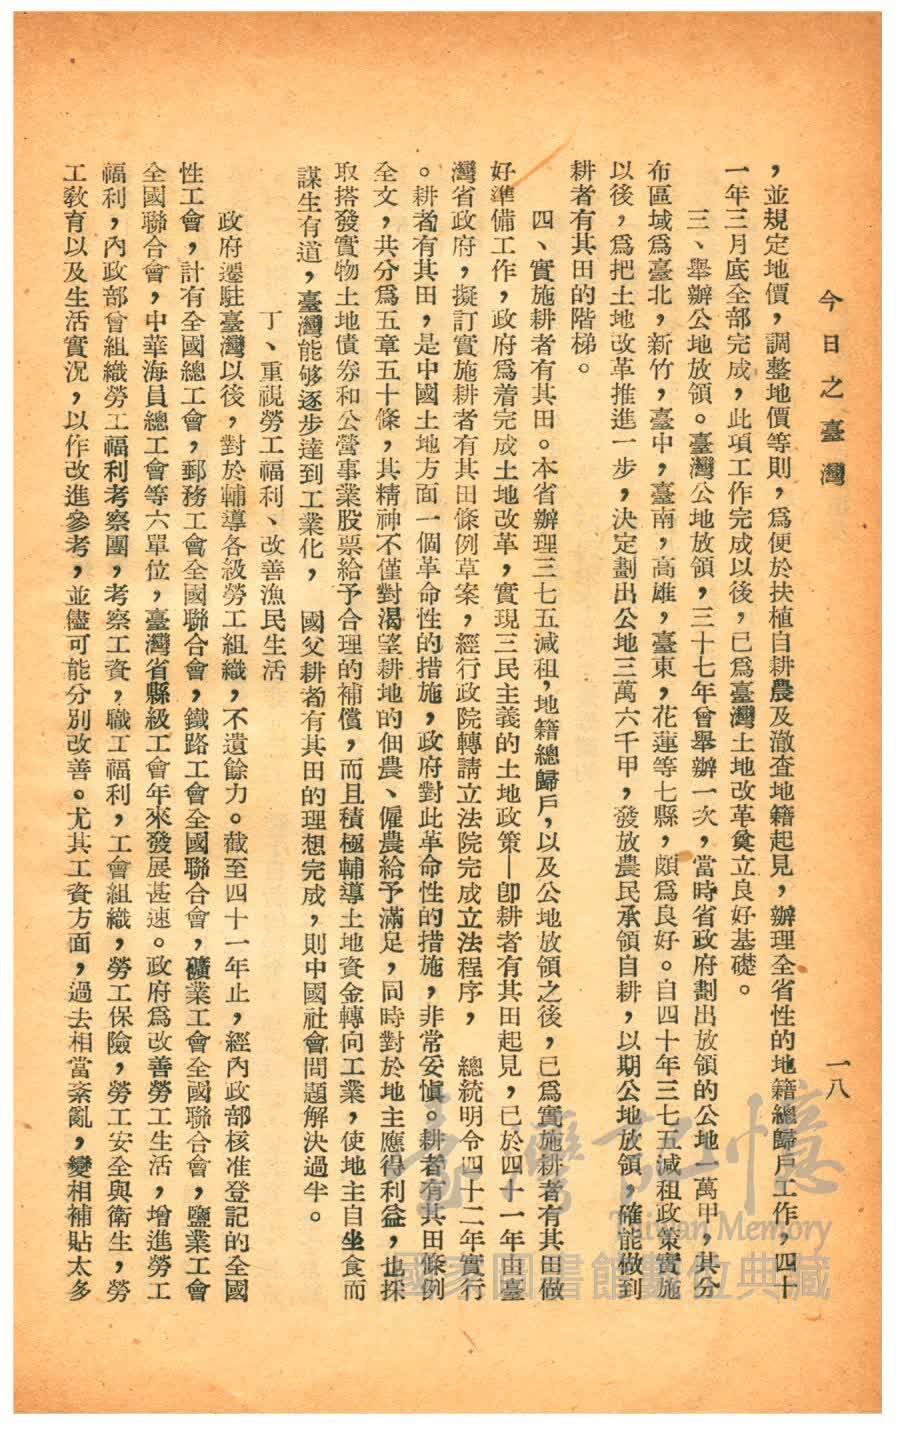 今日之臺灣
一八
，並規定地價，調整地價等則，爲便於扶植自耕農及澈查地籍起見，辦理全省性的地籍總歸戶工作，四十
一年三月底全部完成，此項工作完成以後，已爲臺灣土地改革奠立良好基礎。
三、舉辦公地放領。臺灣公地放領，三十七年曾舉辦一次，當時省政府劃出放領的公地一萬甲，其分
布區域爲臺北，新竹，臺中，臺南，高雄，臺東，花蓮等七縣，頗爲良好。自四十年三七五減租政策實施
以後，爲把土地改革推進一步，決定劃出公地三萬六千甲，發放農民承領自耕，以期公地放領，確能做到
耕者有其田的階梯。
四、實施耕者有其田。本省辦理三七五減租，地籍總歸戶，以及公地放領之後，已爲實施耕者有其田做
好準備工作，政府爲着完成土地改革，實現三民主義的土地政策─卽耕者有其田起見，已於四十一年由臺
灣省政府，擬訂實施耕者有其田條例草案，經行政院轉請立法院完成立法程序，　總統明令四十二年實行
。耕者有其田，是中國土地方面一個革命性的措施，政府對此革命性的措施，非常妥愼。耕者有其田條例
全文，共分爲五章五十條，其精神不僅對渴望耕地的佃農、僱農給予滿足，同時對於地主應得利益，也採
取搭發實物土地債券和公營事業股票給予合理的補償，而且積極輔導土地資金轉向工業，使地主自坐食而
謀生有道，臺灣能够逐步達到工業化，　國父耕者有其田的理想完成，則中國社會問題解決過半。
丁、重視勞工福利、改善漁民生活
政府遷駐臺灣以後，對於輔導各級勞工組織，不遺餘力。截至四十一年止，經內政部核准登記的全國
性工會，計有全國總工會，郵務工會全國聯合會，鐵路工會全國聯合會，礦業工會全國聯合會，鹽業工會
全國聯合會，中華海員總工會等六單位，臺灣省縣級工會年來發展甚速。政府爲改善勞工生活，增進勞工
福利，內政部曾組織勞工福利考察團，考察工資，職工福利，工會組織，勞工保險，勞工安全與衛生，勞
工敎育以及生活實況，以作改進參考，並儘可能分別改善。尤其工資方面，過去相當紊亂，變相補貼太多
臺灣記憶
Taiwan Memory
國家圖書館數位典藏